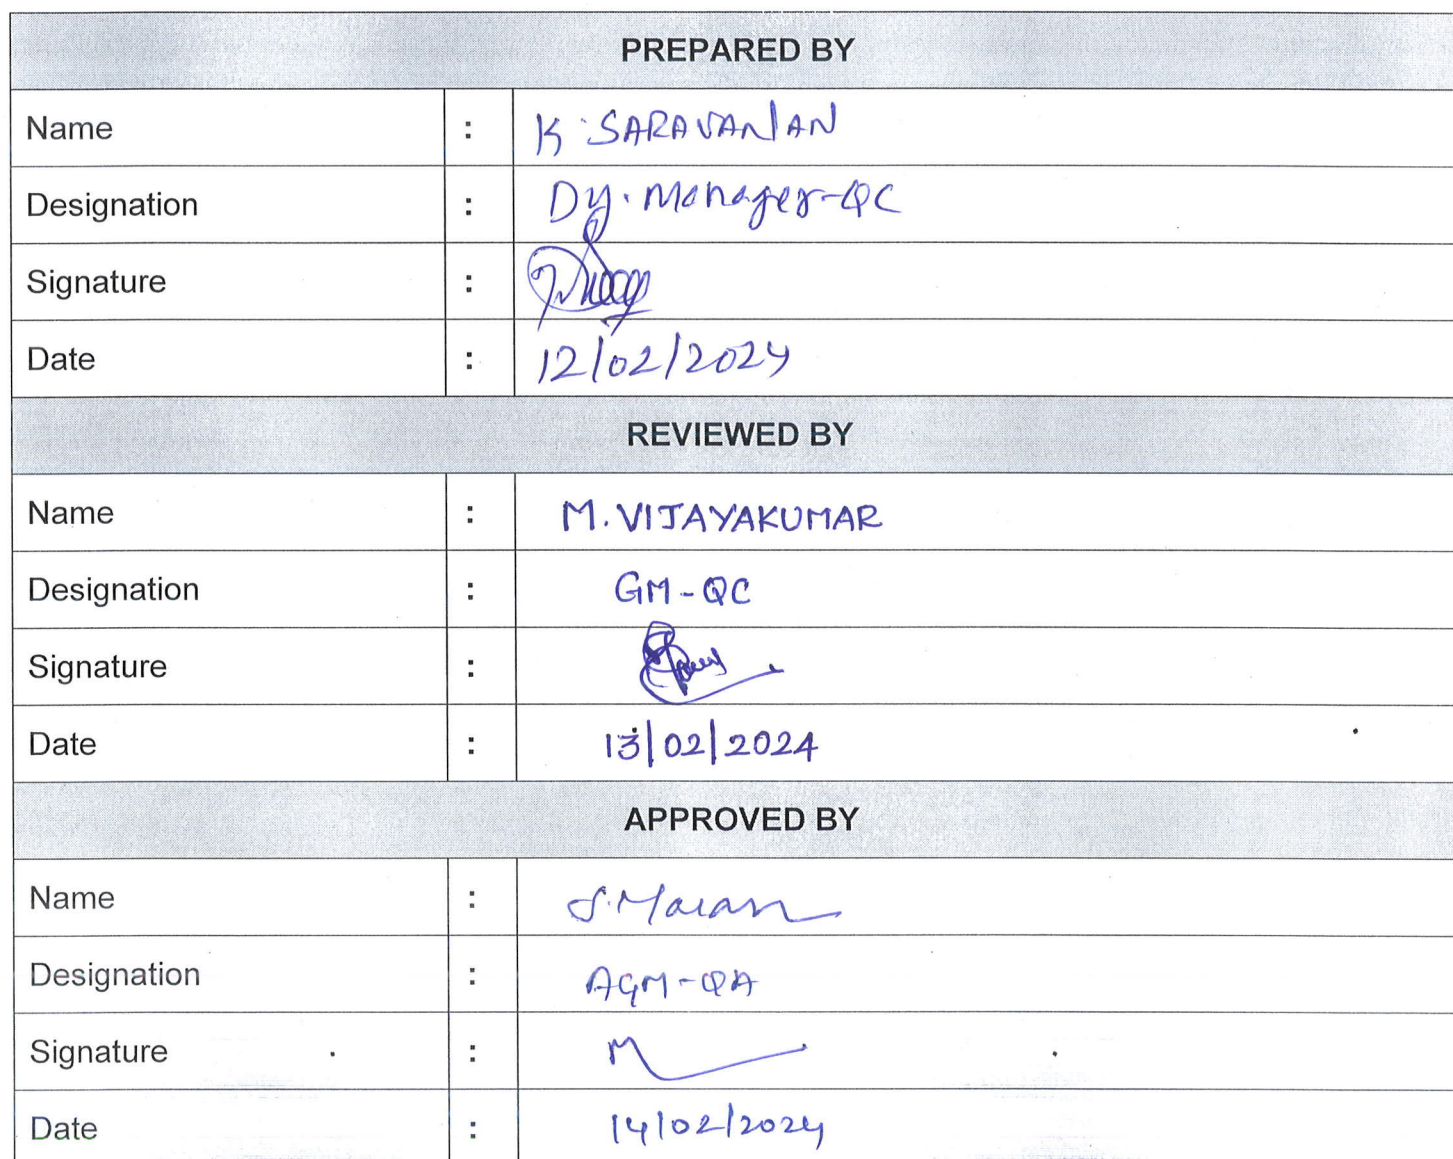 PREPARED BY
Name : K. SARAVANAN
Designation : Dy. Manager-QC
Signature :
Date : 12/02/2024
REVIEWED BY
Name : M. VIJAYAKUMAR
Designation : GM-QC
Signature :
Date : 13/02/2024
APPROVED BY
Name : S. Maran
Designation : AGM-QA
Signature : M
Date : 14/02/2024